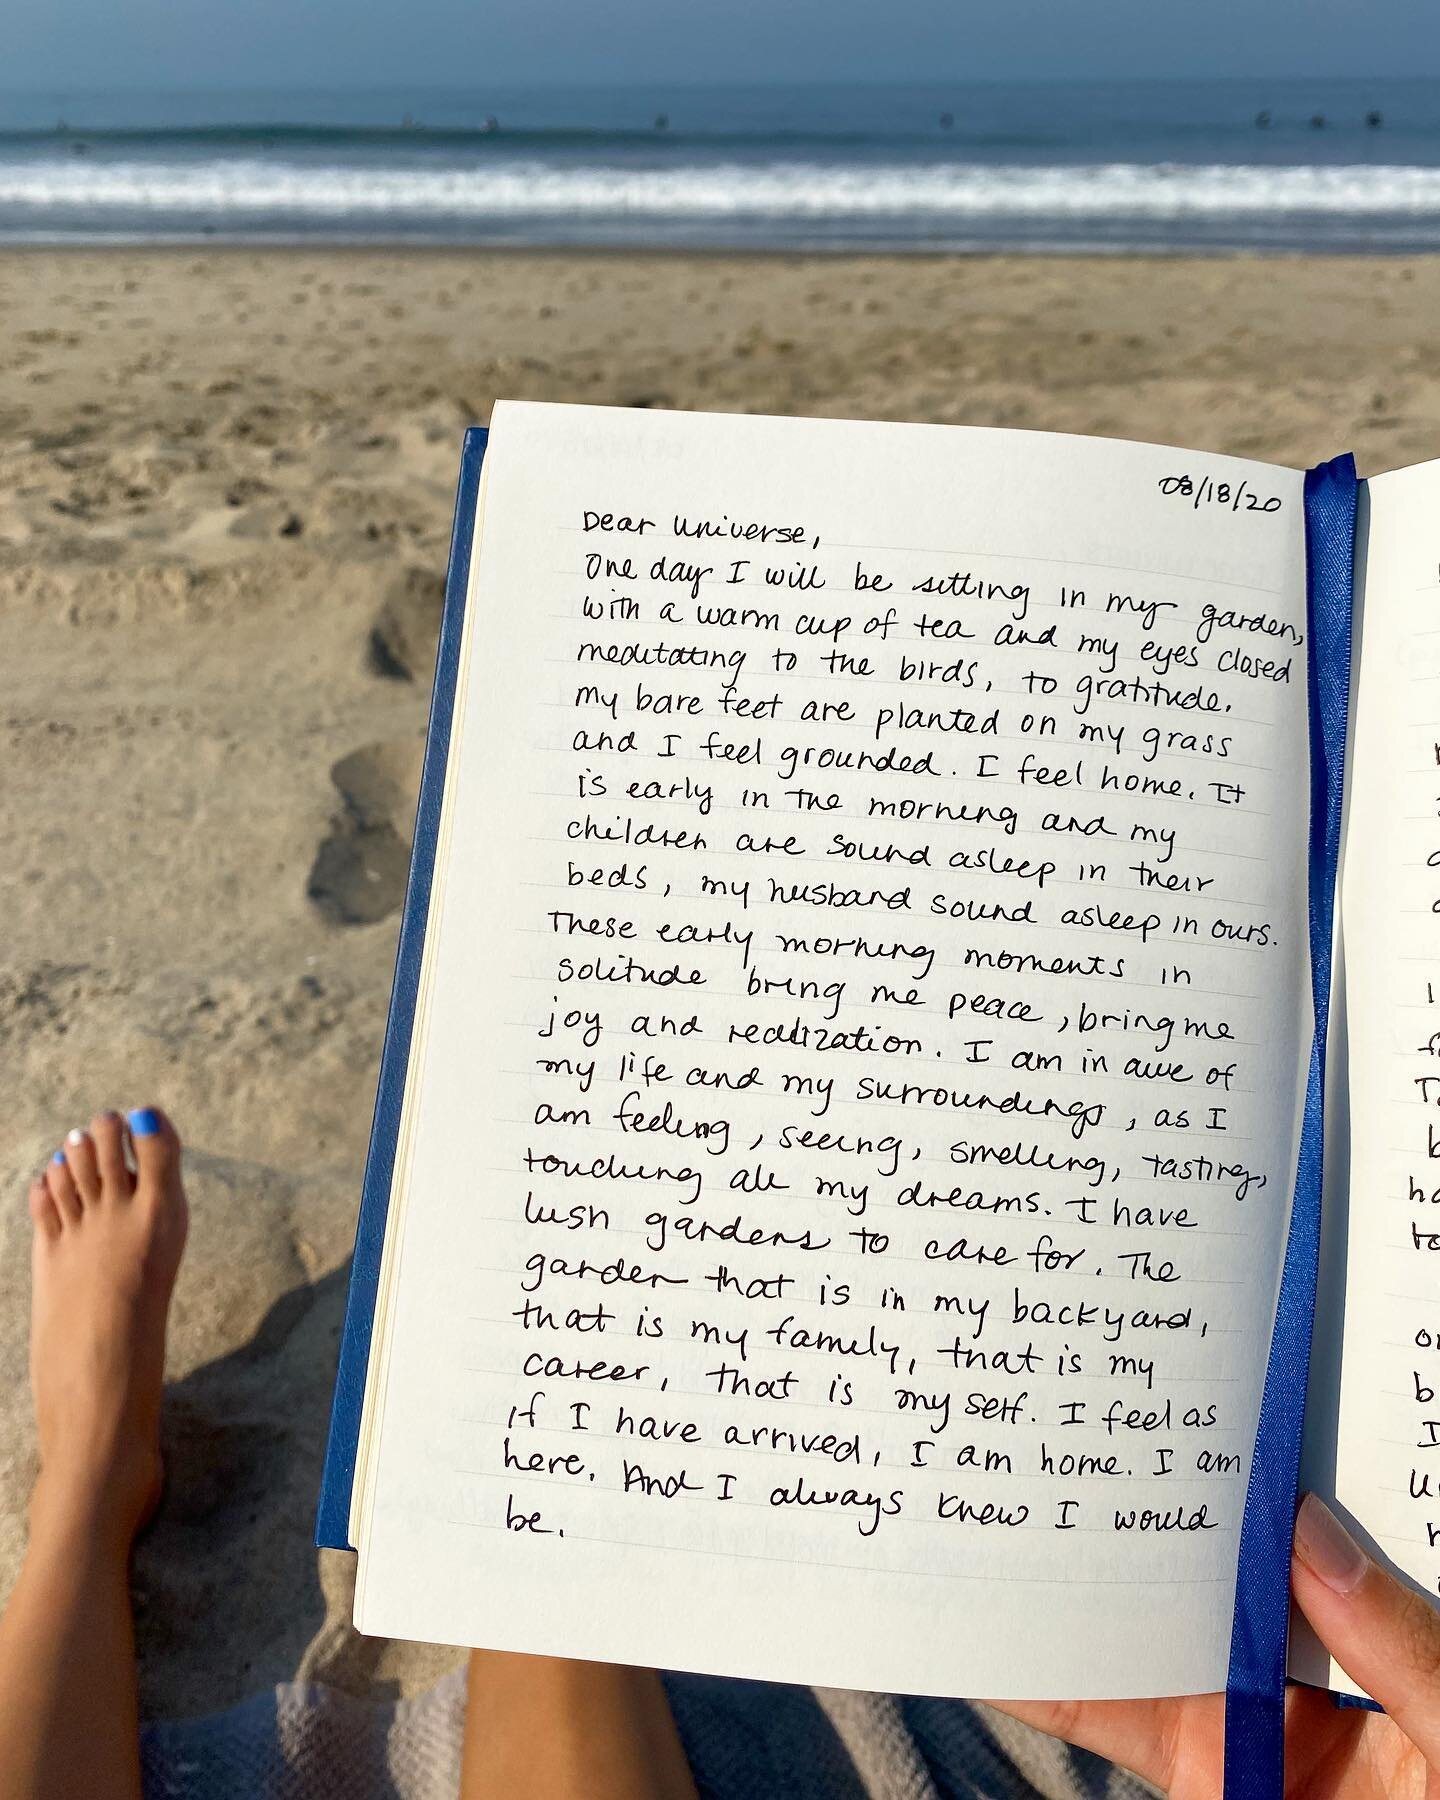 08/18/20
Dear Universe,
One day I will be sitting in my garden,
with a warm cup of tea and my eyes closed
meditating to the birds, to gratitude.
my bare feet are planted on my grass
and I feel grounded. I feel home. It
is early in the morning and my
children are sound asleep in their
beds, my husband sound asleep in ours.
These early morning moments in
solitude bring me peace, bring me
joy and realization. I am in awe of
my life and my surroundings, as I
am feeling, seeing, smelling, tasting,
touching all my dreams. I have
lush gardens to care for. The
garden that is in my backyard,
that is my family, that is my
career, that is my self. I feel as
if I have arrived, I am home. I am
here. And I always knew I would
be.